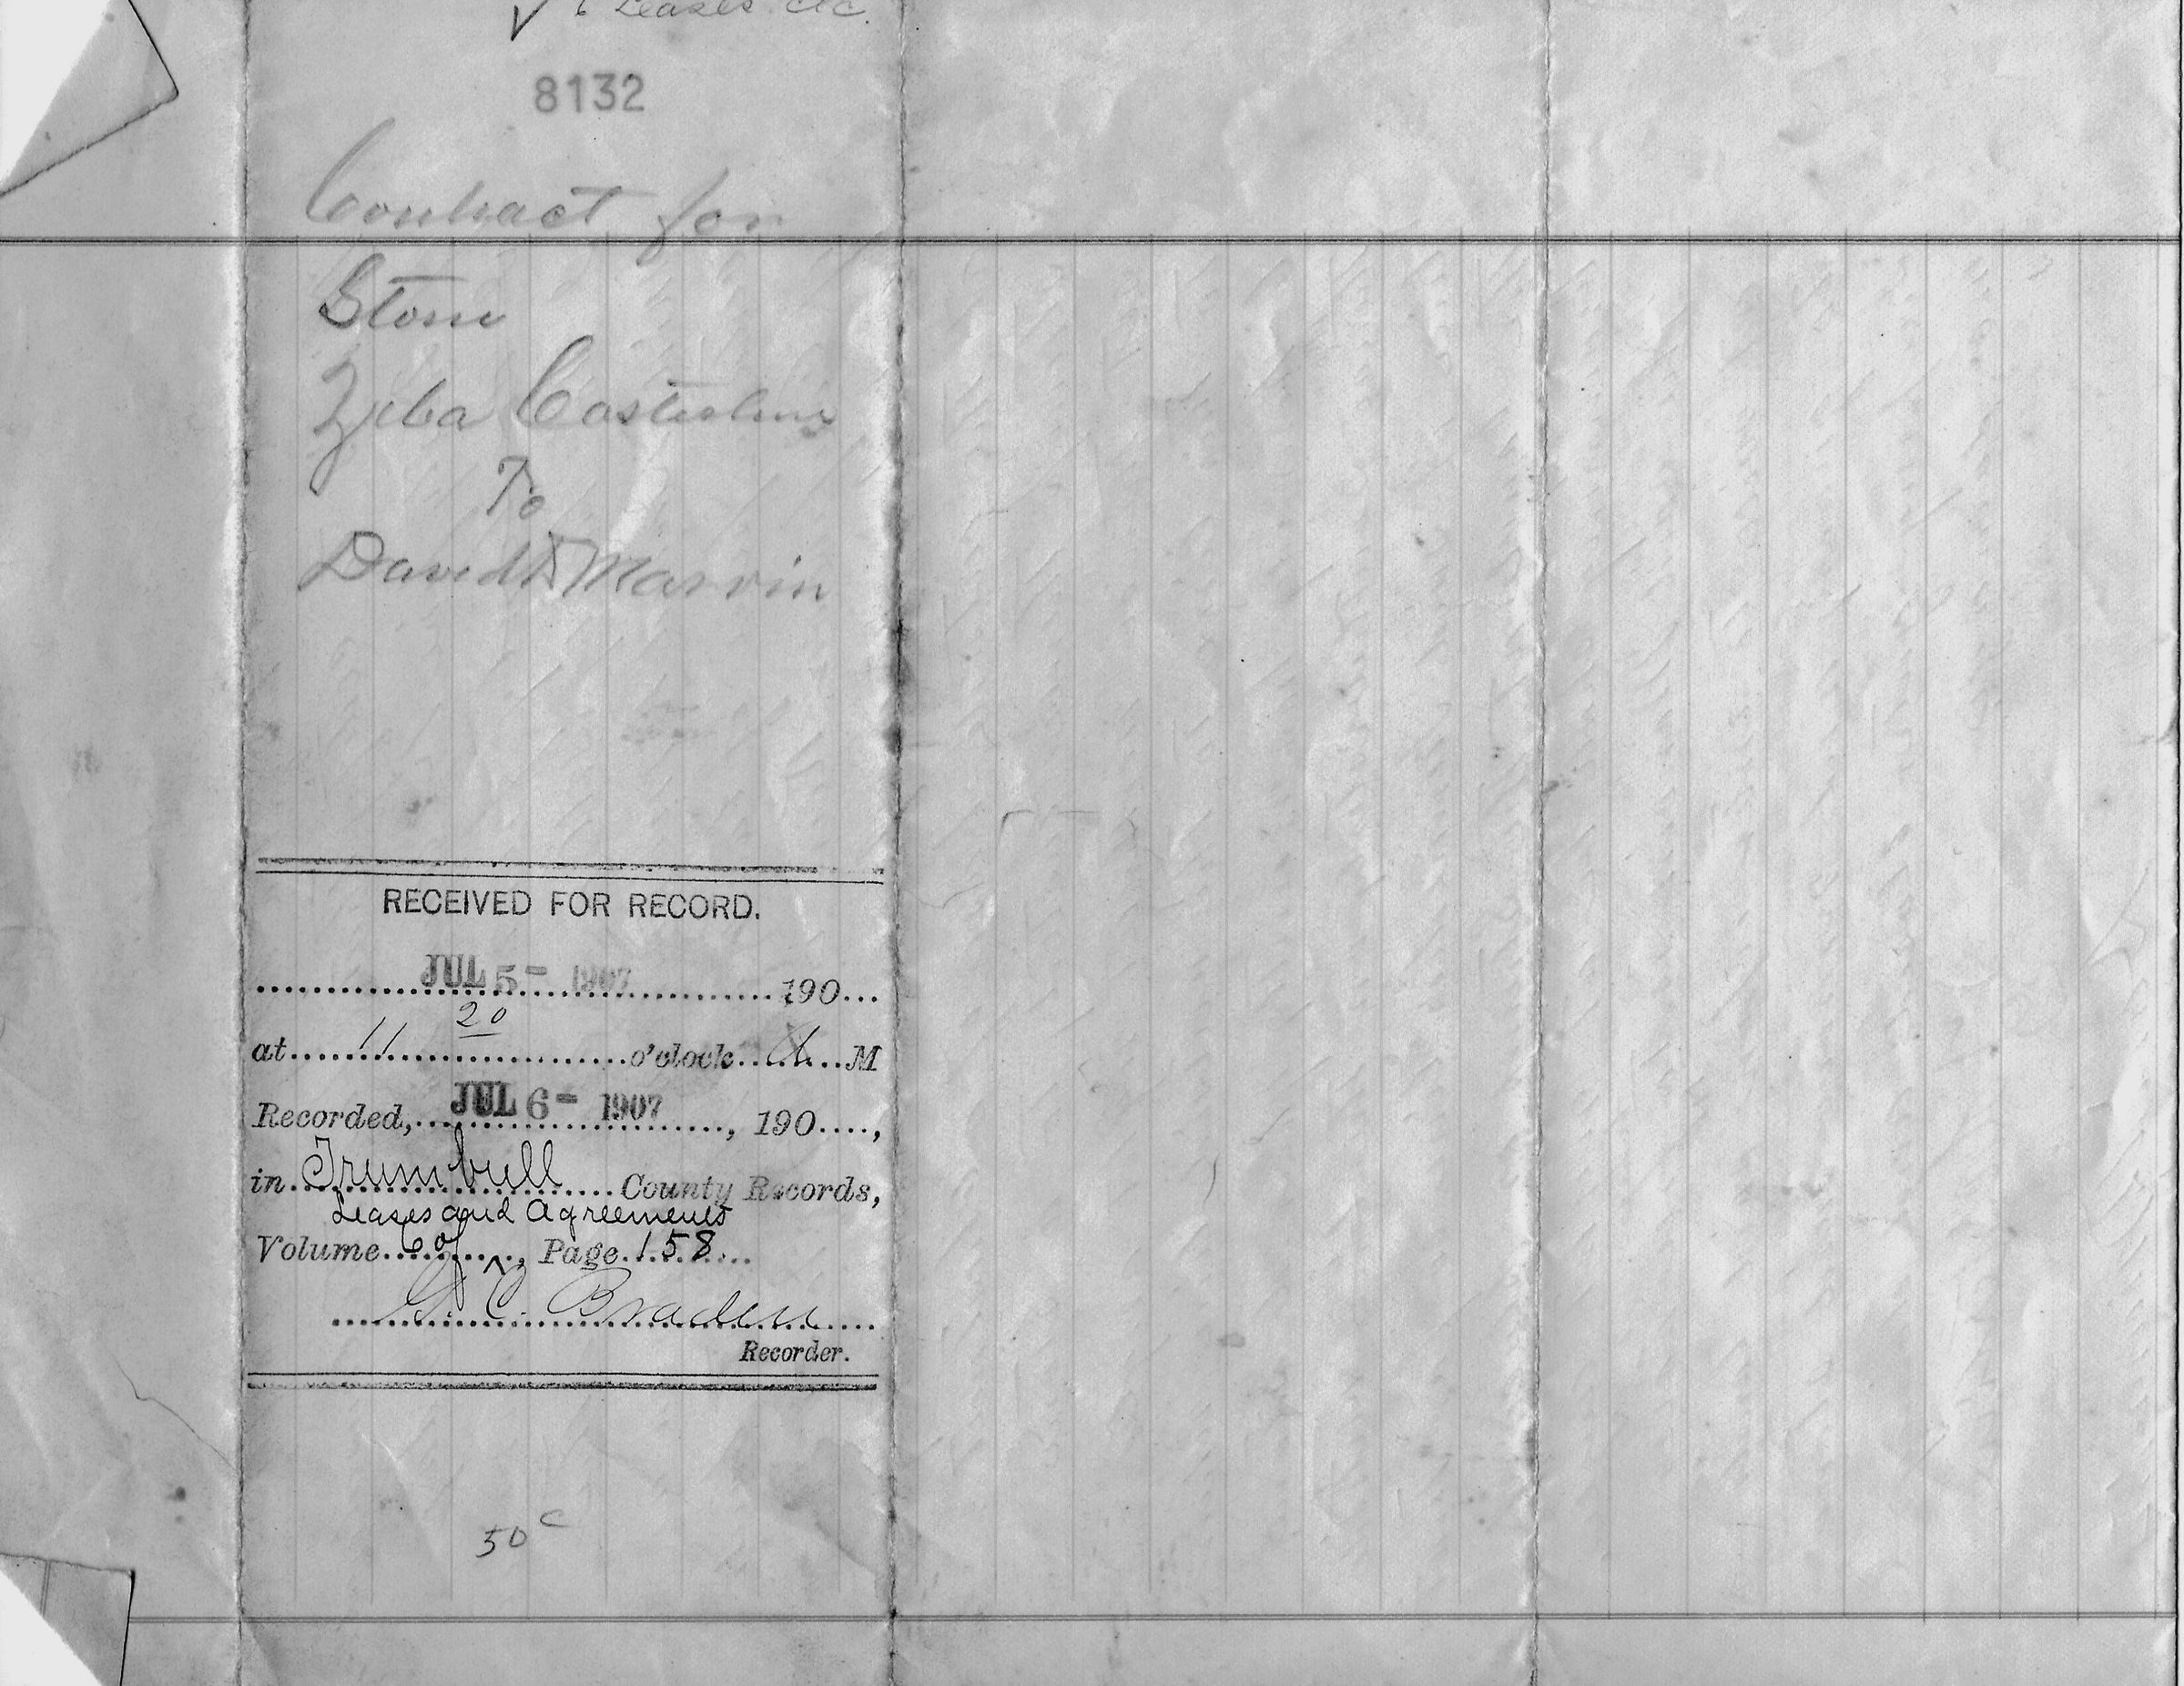 6 Leases etc.
8132
Contract for
Stone
Ziba Casterline
To
David Marvin
RECEIVED FOR RECORD.
JUL 5- 1907 190...
at 11 20 o'clock A. M
Recorded, JUL 6- 1907, 190....,
in Trumbull County Records,
Leases and Agreements
Volume 6 of ^, Page 158
G. C. Braden
Recorder.
50c